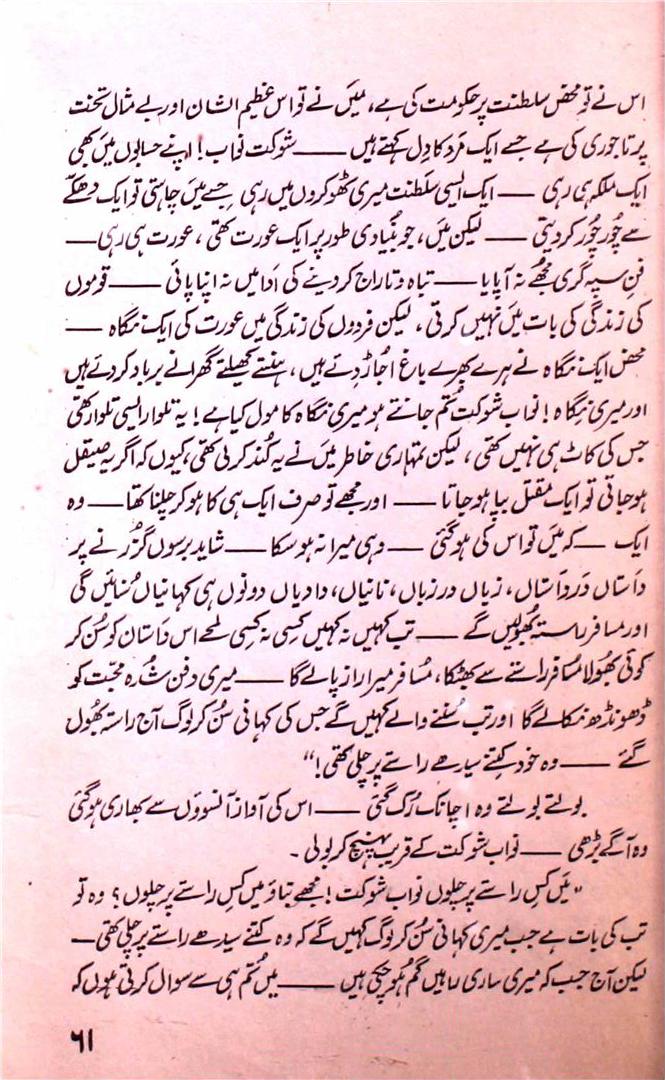 اس نے تو محض سلطنت پر حکومت کی ہے، میں نے تو اس عظیم الشان اور بے مثال تخت
پر تاجوری کی ہے جسے ایک مرد کا دل کہتے ہیں —— شوکت نواب! اپنے حسابوں میں بھی
ایک ملکہ ہی رہی —— ایک ایسی سلطنت میری ٹھوکروں میں رہی جسے میں چاہتی تو ایک دھکّے
سے چُور چُور کر دیتی —— لیکن میں، جو بُنیادی طور پر ایک عورت تھی، عورت ہی رہی ——
فنِ سپہ گری مجھے نہ آ پایا —— تباہ و تاراج کر دینے کی ادا میں نہ اپنا پائی —— قوموں
کی زندگی کی بات میں نہیں کرتی، لیکن فردوں کی زندگی میں عورت کی ایک نگاہ ——
محض ایک نگاہ نے ہرے بھرے باغ اُجاڑ دئے ہیں، ہنستے کھیلتے گھرانے برباد کر دئے ہیں
اور میری نگاہ! نواب شوکت تم جانتے ہو میری نگاہ کا مول کیا ہے! یہ تلوار ایسی تلوار تھی
جس کی کاٹ ہی نہیں تھی، لیکن تمہاری خاطر میں نے یہ کُند کر لی تھی، کیوں کہ اگر یہ صیقل
ہو جاتی تو ایک مقتل بپا ہو جاتا —— اور مجھے تو صرف ایک ہی کا ہو کر چلنا تھا —— وہ
ایک —— کہ میں تو اس کی ہو گئی —— وہی میرا نہ ہو سکا —— شاید برسوں گزرنے پر
داستاں در داستاں، زباں در زباں، نانیاں، دادیاں دونوں ہی کہانیاں سُنائیں گی
اور مسافر راستہ بھُولیں گے —— تب کہیں نہ کہیں کسی نہ کسی لمحے اس داستان کو سُن کر
کوئی بھُولا مسافر راستے سے بھٹکا، مُسافر میرا راز پا لے گا —— میری دفن شُدہ محبت کو
ڈھونڈھ نکالے گا اور تب سُننے والے کہیں گے جس کی کہانی سُن کر لوگ آج راستہ بھُول
گئے —— وہ خود کتنے سیدھے راستے پر چلی تھی!"
بولتے بولتے وہ اچانک رُک گئی —— اس کی آواز آنسوؤں سے بھاری ہو گئی
وہ آگے بڑھی —— نواب شوکت کے قریب پہنچ کر بولی۔
"میں کس راستے پر چلوں نواب شوکت! مجھے بتاؤ میں کس راستے پر چلوں؟ وہ تو
تب کی بات ہے جب میری کہانی سُن کر لوگ کہیں گے کہ وہ کتنے سیدھے راستے پر چلی تھی ——
لیکن آج جب کہ میری ساری راہیں گم ہو چکی ہیں —— میں تُم ہی سے سوال کرتی ہوں کہ
۶۱